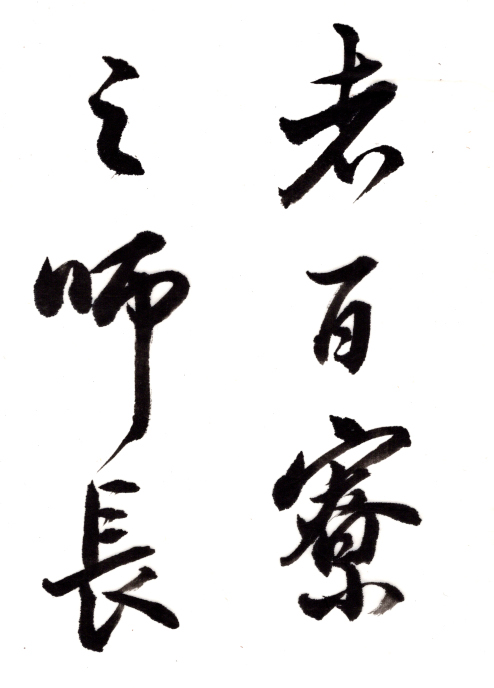 者百寮
之師長